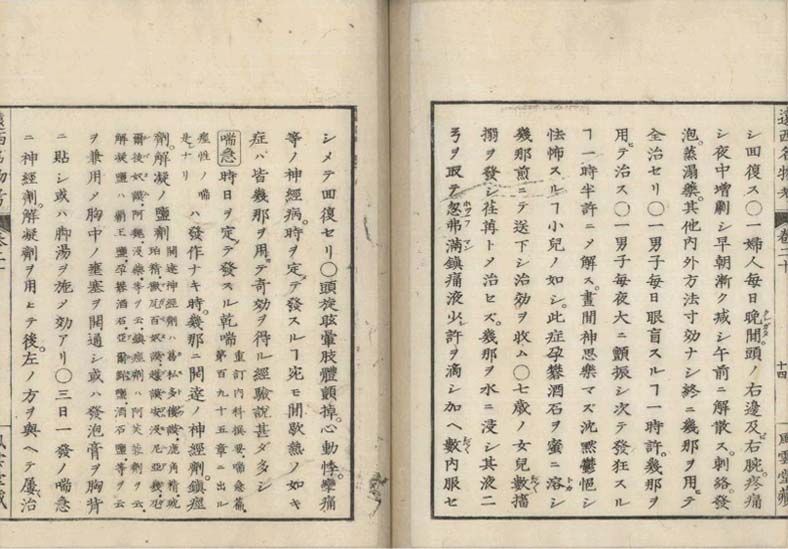 シ回復ス〇一婦人毎日晩間頭ノ右邊及右腕疼痛
シ夜中増劇シ早朝漸ク減シ午前ニ解散ス。刺絡。發
泡。蒸溻藥。其他内外方法寸効ナシ終ニ幾那ヲ用テ
全治セリ〇一男子毎日眼盲スルヿ一時許。幾那ヲ
用テ治ス〇一男子毎夜大ニ顫振シ次テ發狂スル
ヿ一時半許ニメ解ス。晝間神思樂マズ沈黙鬱悒シ
怯怖スルヿ小兒ノ如シ。此症孕礬酒石ヲ蜜ニ溶シ
幾那煎ニテ送下シ治効ヲ收ム〇七歳ノ女兒數搐
搦ヲ發シ荏苒トメ治セズ。幾那ヲ水ニ浸シ其液二
弓ヲ取テ忽弗滿鎮痛液少許ヲ滴シ加ヘ數内服セ
遠西名物考
卷二十
十四
風雲堂藏
シメテ回復セリ〇頭旋眩暈肢體顫掉。心動悸。攣痛
等ノ神經病。時ヲ定テ發スルヿ宛モ間歇熱ノ如キ
症ハ皆幾那ヲ用テ奇効ヲ得ル經驗説甚ダ多シ
喘急 時日ヲ定テ發スル乾喘 重訂内科撰要喘急篇第百九十五章ニ出ル
痙性ノ喘是ナリ ハ發作ナキ時。幾那ニ開達ノ神經劑。鎮痙
劑。解凝ノ鹽劑
ヲ兼用メ胸中ノ壅塞ヲ開通シ或ハ發泡膏ヲ胸背
ニ貼シ或ハ脚湯ヲ施メ効アリ〇三日一發ノ喘急
ニ神經劑。解凝劑ヲ用ヒテ後。左ノ方ヲ與ヘテ屢治